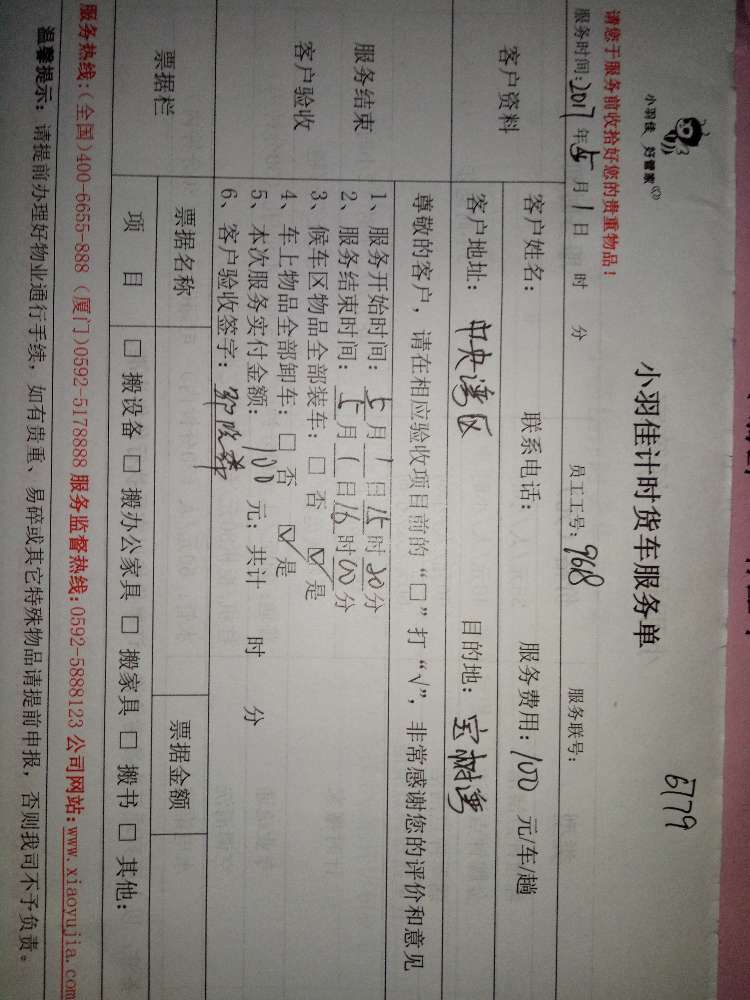 6779
小羽佳 好管家
小羽佳计时货车服务单
请您于服务前收拾好您的贵重物品！
服务时间：2017年5月1日 时 分 员工工号：9618 服务联号：
客户资料
客户姓名： 联系电话： 服务费用：100 元/车/趟
客户地址：中央湾区 目的地：宝树湾
服务结束
客户验收
尊敬的客户，请在相应验收项目前的“□”打“√”，非常感谢您的评价和意见
1、服务开始时间：5月1日15时20分
2、服务结束时间：5月1日16时00分
3、候车区物品全部装车：□ 否 ☑ 是
4、车上物品全部卸车：□ 否 ☑ 是
5、本次服务实付金额：100 元；共计 时 分
6、客户验收签字：
票据栏
票据名称 票据金额
项 目 □ 搬设备 □ 搬办公家具 □ 搬家具 □ 搬书 □ 其他：
服务热线：（全国）400-6655-888 （厦门）0592-5178888 服务监督热线：0592-5888123 公司网站：www.xiaoyujia.com
温馨提示：请提前办理好物业通行手续，如有贵重、易碎或其它特殊物品请提前申报，否则我司不予负责。